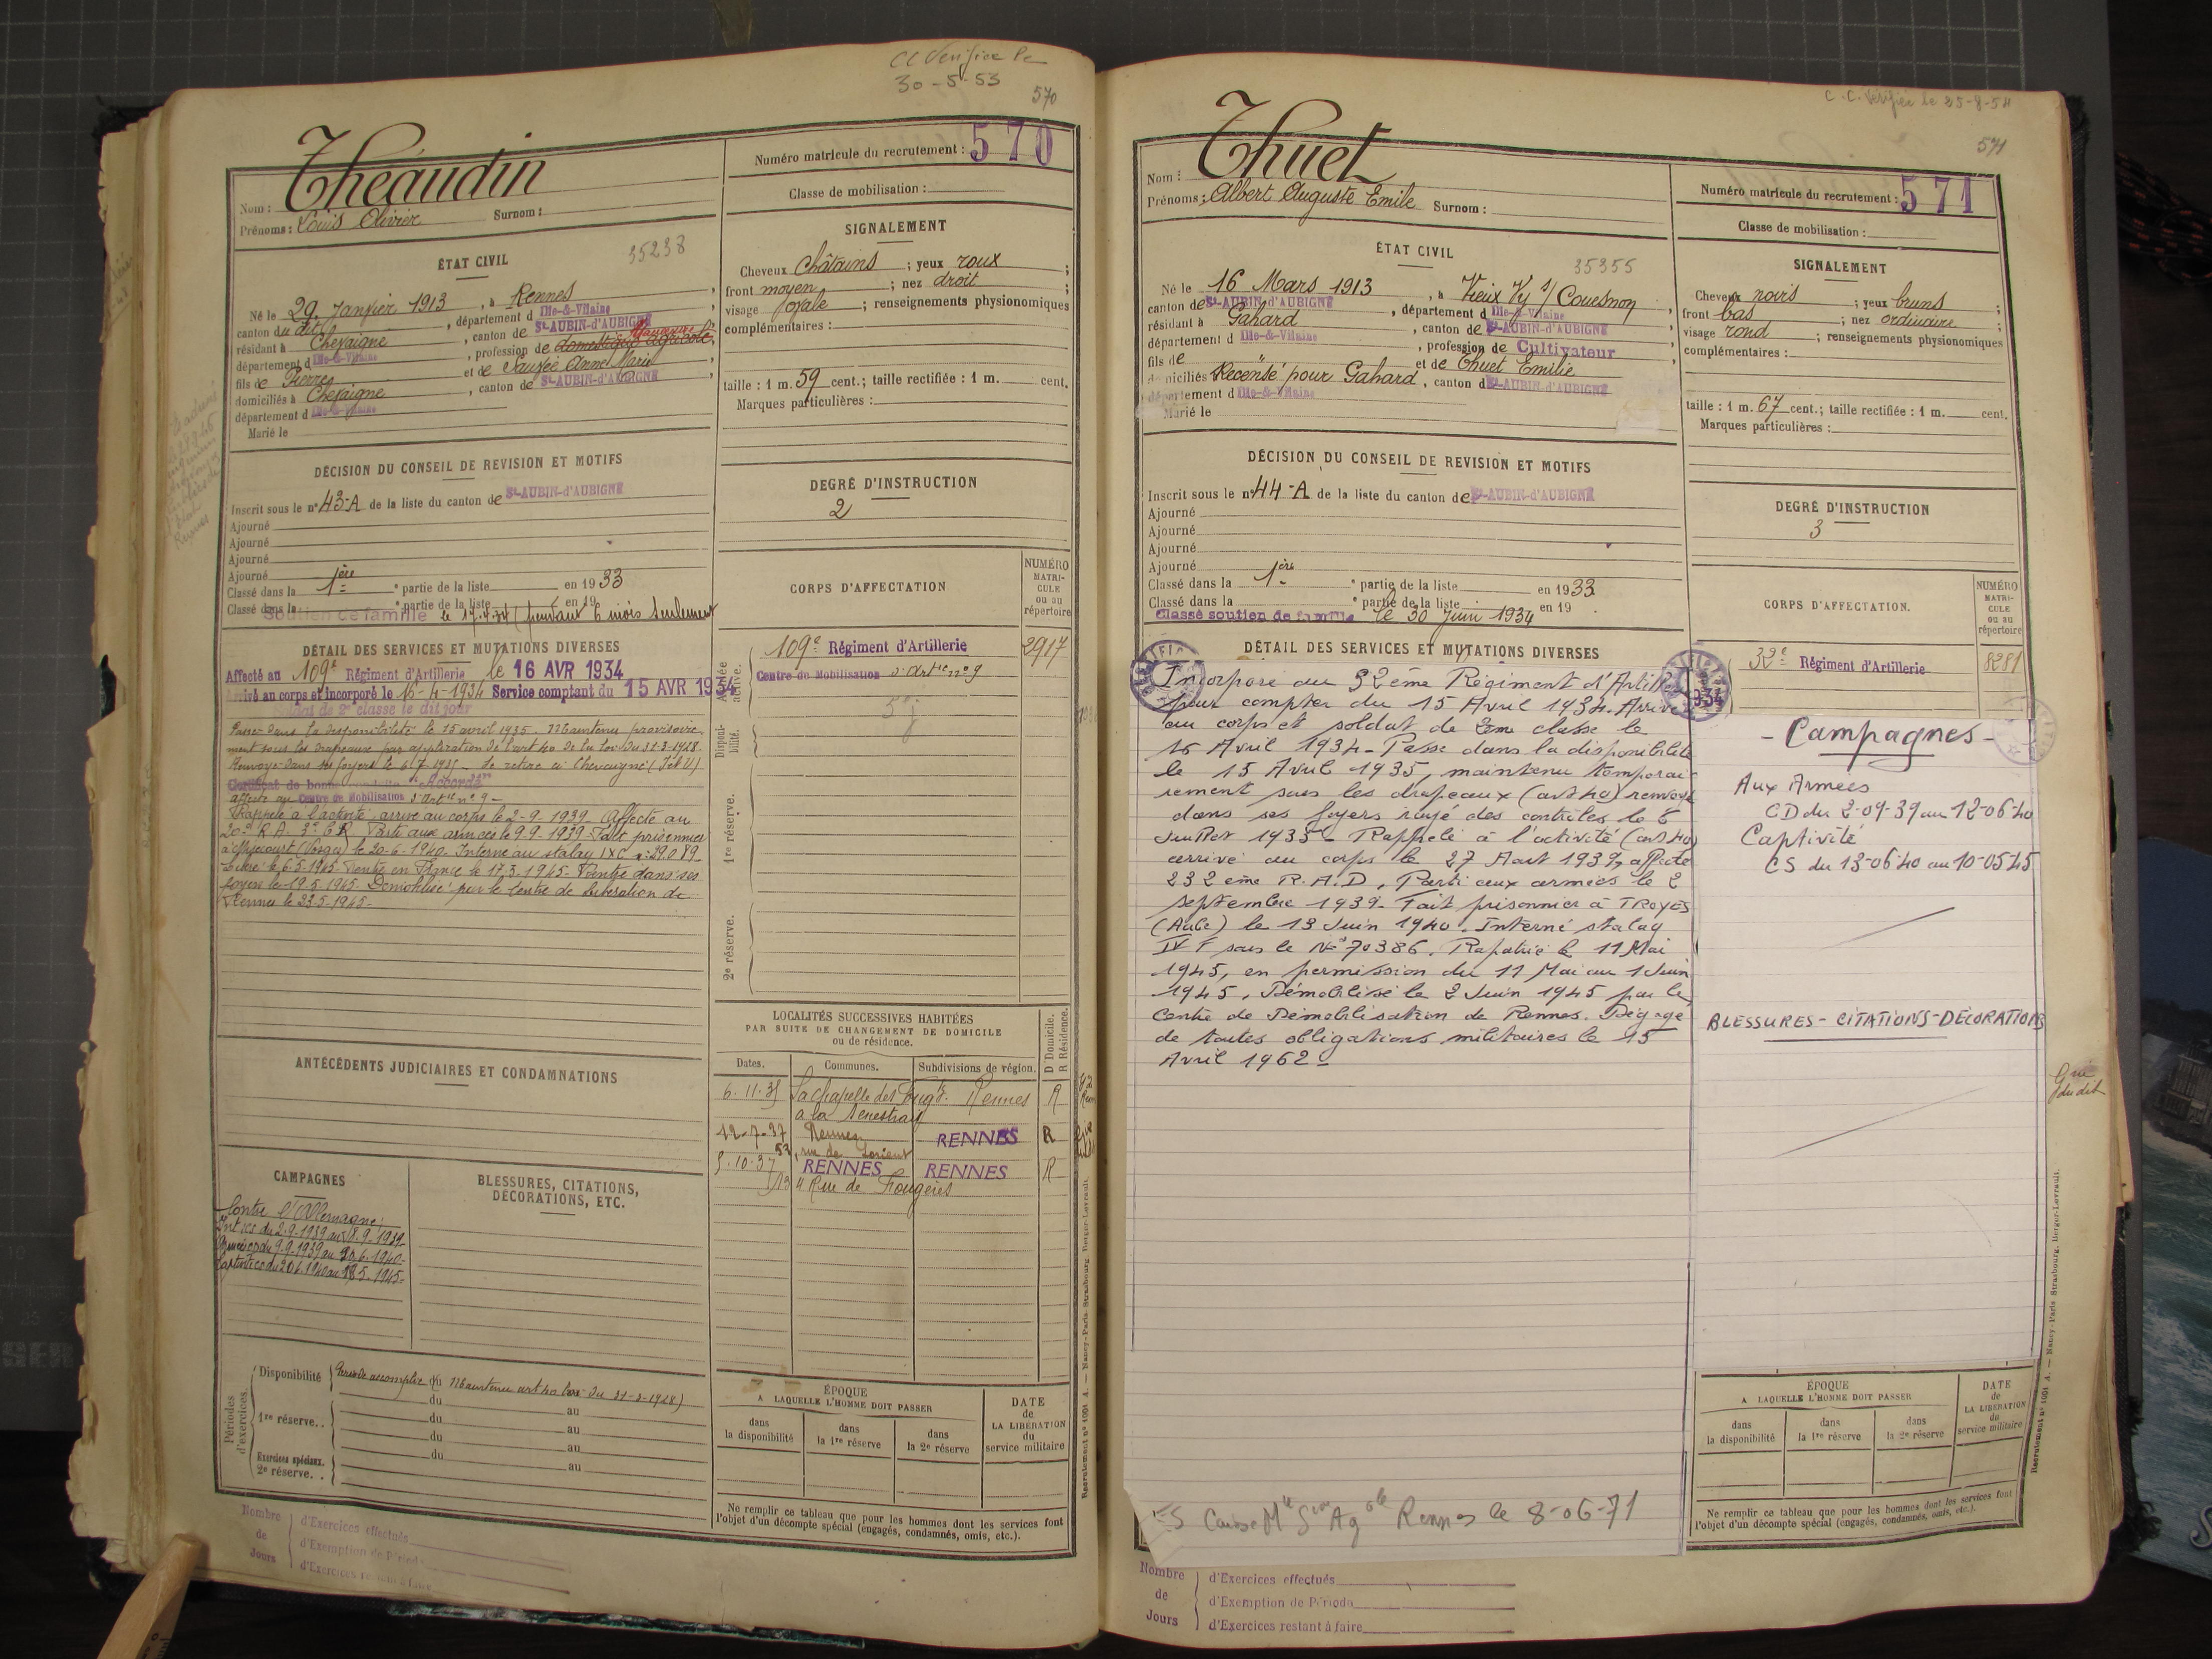 CC Vérifiée le
30-5-53
570
Nom : Théaudin
Prénoms : Louis Olivier Surnom :
Numéro matricule du recrutement : 570
Classe de mobilisation :
ÉTAT CIVIL
35238
Né le 29 Janvier 1913, à Rennes,
canton du dit, département d Ille-&-Vilaine
résidant à Chevaigné, canton de St-AUBIN-d'AUBIGNÉ
département d Ille-&-Vilaine, profession de domestique agricole,
fils de Pierre et de Saucée Anne Marie
domiciliés à Chevaigné, canton de St-AUBIN-d'AUBIGNÉ,
département d Ille-&-Vilaine
Marié le
SIGNALEMENT
Cheveux Châtains ; yeux roux ;
front moyen ; nez droit ;
visage ovale ; renseignements physionomiques
complémentaires :
taille : 1 m. 59 cent. ; taille rectifiée : 1 m. cent.
Marques particulières :
DÉCISION DU CONSEIL DE REVISION ET MOTIFS
Inscrit sous le n° 43-A de la liste du canton de St-AUBIN-d'AUBIGNÉ
Ajourné
Ajourné
Ajourné
Ajourné
Classé dans la 1ère partie de la liste en 1933
Classé dans la partie de la liste en 19
Soutien de famille le 17.4.34 (pendant 6 mois seulement
DEGRÉ D'INSTRUCTION
2
CORPS D'AFFECTATION
NUMÉRO MATRI-CULE ou au répertoire
Armée active.
109e Régiment d'Artillerie 2917
Centre de Mobilisation d'Artie n° 9
Disponi-bilité.
1re réserve.
2e réserve.
DÉTAIL DES SERVICES ET MUTATIONS DIVERSES
Affecté au 109e Régiment d'Artillerie le 16 AVR 1934
Arrivé au corps et incorporé le 16-4-1934 Service comptant du 15 AVR 1934
Soldat de 2e classe le dit jour
Passé dans la disponibilité le 15 avril 1935. Maintenu provisoire
ment sous les drapeaux par application de l'art 40 de la loi du 31-3-1928.
Renvoyé dans ses foyers le 6.7.1935. Se retire à Chevaigné (I & V)
Certificat de bonne conduite "Accordé"
affecté au Centre de Mobilisation d'Artie n° 9 -
Rappelé à l'activité, arrivé au corps le 2-9-1939. Affecté au
20e R.A. Parti aux armées le 9.9.1939. Fait prisonnier
à (Vosges) le 20-6-1940. Interné au stalag IX C n° 29089.
Libéré le 6.5.1945. Rentré en France le 17.5.1945. Rentré dans ses
foyers le 19.5.1945. Démobilisé par le Centre de Libération de
Rennes le 23.5.1945.
ANTÉCÉDENTS JUDICIAIRES ET CONDAMNATIONS
LOCALITÉS SUCCESSIVES HABITÉES
PAR SUITE DE CHANGEMENT DE DOMICILE
ou de résidence.
D Domicile. R Résidence.
Dates. Communes. Subdivisions de région.
6.11.35 La Chapelle des Fougz. Rennes R
à la Senestrais
12-7-37 Rennes RENNES R
53, rue de Lorient
5.10.37 RENNES RENNES R
113 Rue de Fougères
CAMPAGNES
Contre l'Allemagne :
Int CS du 2.9.1939 au 8.9.1939
Armées CD du 9.9.1939 au 20.6.1940.
Captivité CS du 20.6.1940 au 18.5.1945.
BLESSURES, CITATIONS,
DÉCORATIONS, ETC.
Périodes d'exercices.
Disponibilité Période accomplie (Maintenu art 40 loi du 31-3-1928)
1re réserve. . du au
du au
du au
Exercices spéciaux. du au
2e réserve. .
ÉPOQUE
A LAQUELLE L'HOMME DOIT PASSER
dans la disponibilité
dans la 1re réserve
dans la 2e réserve
DATE de LA LIBÉRATION du service militaire
Ne remplir ce tableau que pour les hommes dont les services font
l'objet d'un décompte spécial (engagés, condamnés, omis, etc.).
Recrutement n° 1001 A. — Nancy-Paris-Strasbourg, Berger-Levrault.
Nombre de Jours
d'Exercices effectués
d'Exemption de Période
d'Exercices restant à faire
C.C. Vérifiée le 25-8-54
571
Nom : Thuet
Prénoms : Albert Auguste Emile Surnom :
Numéro matricule du recrutement : 571
Classe de mobilisation :
ÉTAT CIVIL
35355
Né le 16 Mars 1913, à Vieux Vy s/ Couesnon
canton de St-AUBIN-d'AUBIGNÉ, département d Ille-&-Vilaine
résidant à Gahard, canton de St-AUBIN-d'AUBIGNÉ
département d Ille-&-Vilaine, profession de Cultivateur
fils de " et de Thuet Emilie
domiciliés Recensé pour Gahard, canton d St-AUBIN-d'AUBIGNÉ
département d Ille-&-Vilaine
Marié le
SIGNALEMENT
Cheveux noirs ; yeux bruns ;
front bas ; nez ordinaire ;
visage rond ; renseignements physionomiques
complémentaires :
taille : 1 m. 67 cent. ; taille rectifiée : 1 m. cent.
Marques particulières :
DÉCISION DU CONSEIL DE REVISION ET MOTIFS
Inscrit sous le n° 44-A de la liste du canton de St-AUBIN-d'AUBIGNÉ
Ajourné
Ajourné
Ajourné
Ajourné
Classé dans la 1ère partie de la liste en 1933
Classé dans la partie de la liste en 19
Classé soutien de famille le 30 Juin 1934
DEGRÉ D'INSTRUCTION
3
CORPS D'AFFECTATION.
NUMÉRO MATRI-CULE ou au répertoire
32e Régiment d'Artillerie 8281
DÉTAIL DES SERVICES ET MUTATIONS DIVERSES
Incorporé au 32ème Régiment d'Artillerie
pour compter du 15 Avril 1934. Arrivé
au corps et soldat de 2ème classe le
16 Avril 1934 - Passé dans la disponibilité
le 15 Avril 1935, maintenu temporai
rement sous les drapeaux (art 40) renvoyé
dans ses foyers rayé des contrôles le 6
Juillet 1935 - Rappelé à l'activité (art 40)
arrivé au corps le 27 Août 1939, affecté
232ème R.A.D, Parti aux armées le 2
septembre 1939 - Fait prisonnier à TROYES
(Aube) le 13 Juin 1940. Interné stalag
IV F sous le N° 70386. Rapatrié le 11 Mai
1945, en permission du 11 Mai au 1 Juin
1945. Démobilisé le 2 Juin 1945 par le
Centre de Démobilisation de Rennes. Dégagé
de toutes obligations militaires le 15
Avril 1962 -
- Campagnes -
Aux Armées
CD du 2-09-39 au 12-06-40
Captivité
CS du 13-06-40 au 10-05-45
BLESSURES - CITATIONS - DÉCORATIONS
Gne du dit
ES Caisse Mle Svce Agole Rennes le 8-06-71
ÉPOQUE
A LAQUELLE L'HOMME DOIT PASSER
dans la disponibilité
dans la 1re réserve
dans la 2e réserve
DATE de LA LIBÉRATION du service militaire
Ne remplir ce tableau que pour les hommes dont les services font
l'objet d'un décompte spécial (engagés, condamnés, omis, etc.).
Recrutement n° 1001 A. — Nancy-Paris-Strasbourg, Berger-Levrault.
Nombre de Jours
d'Exercices effectués
d'Exemption de Période
d'Exercices restant à faire